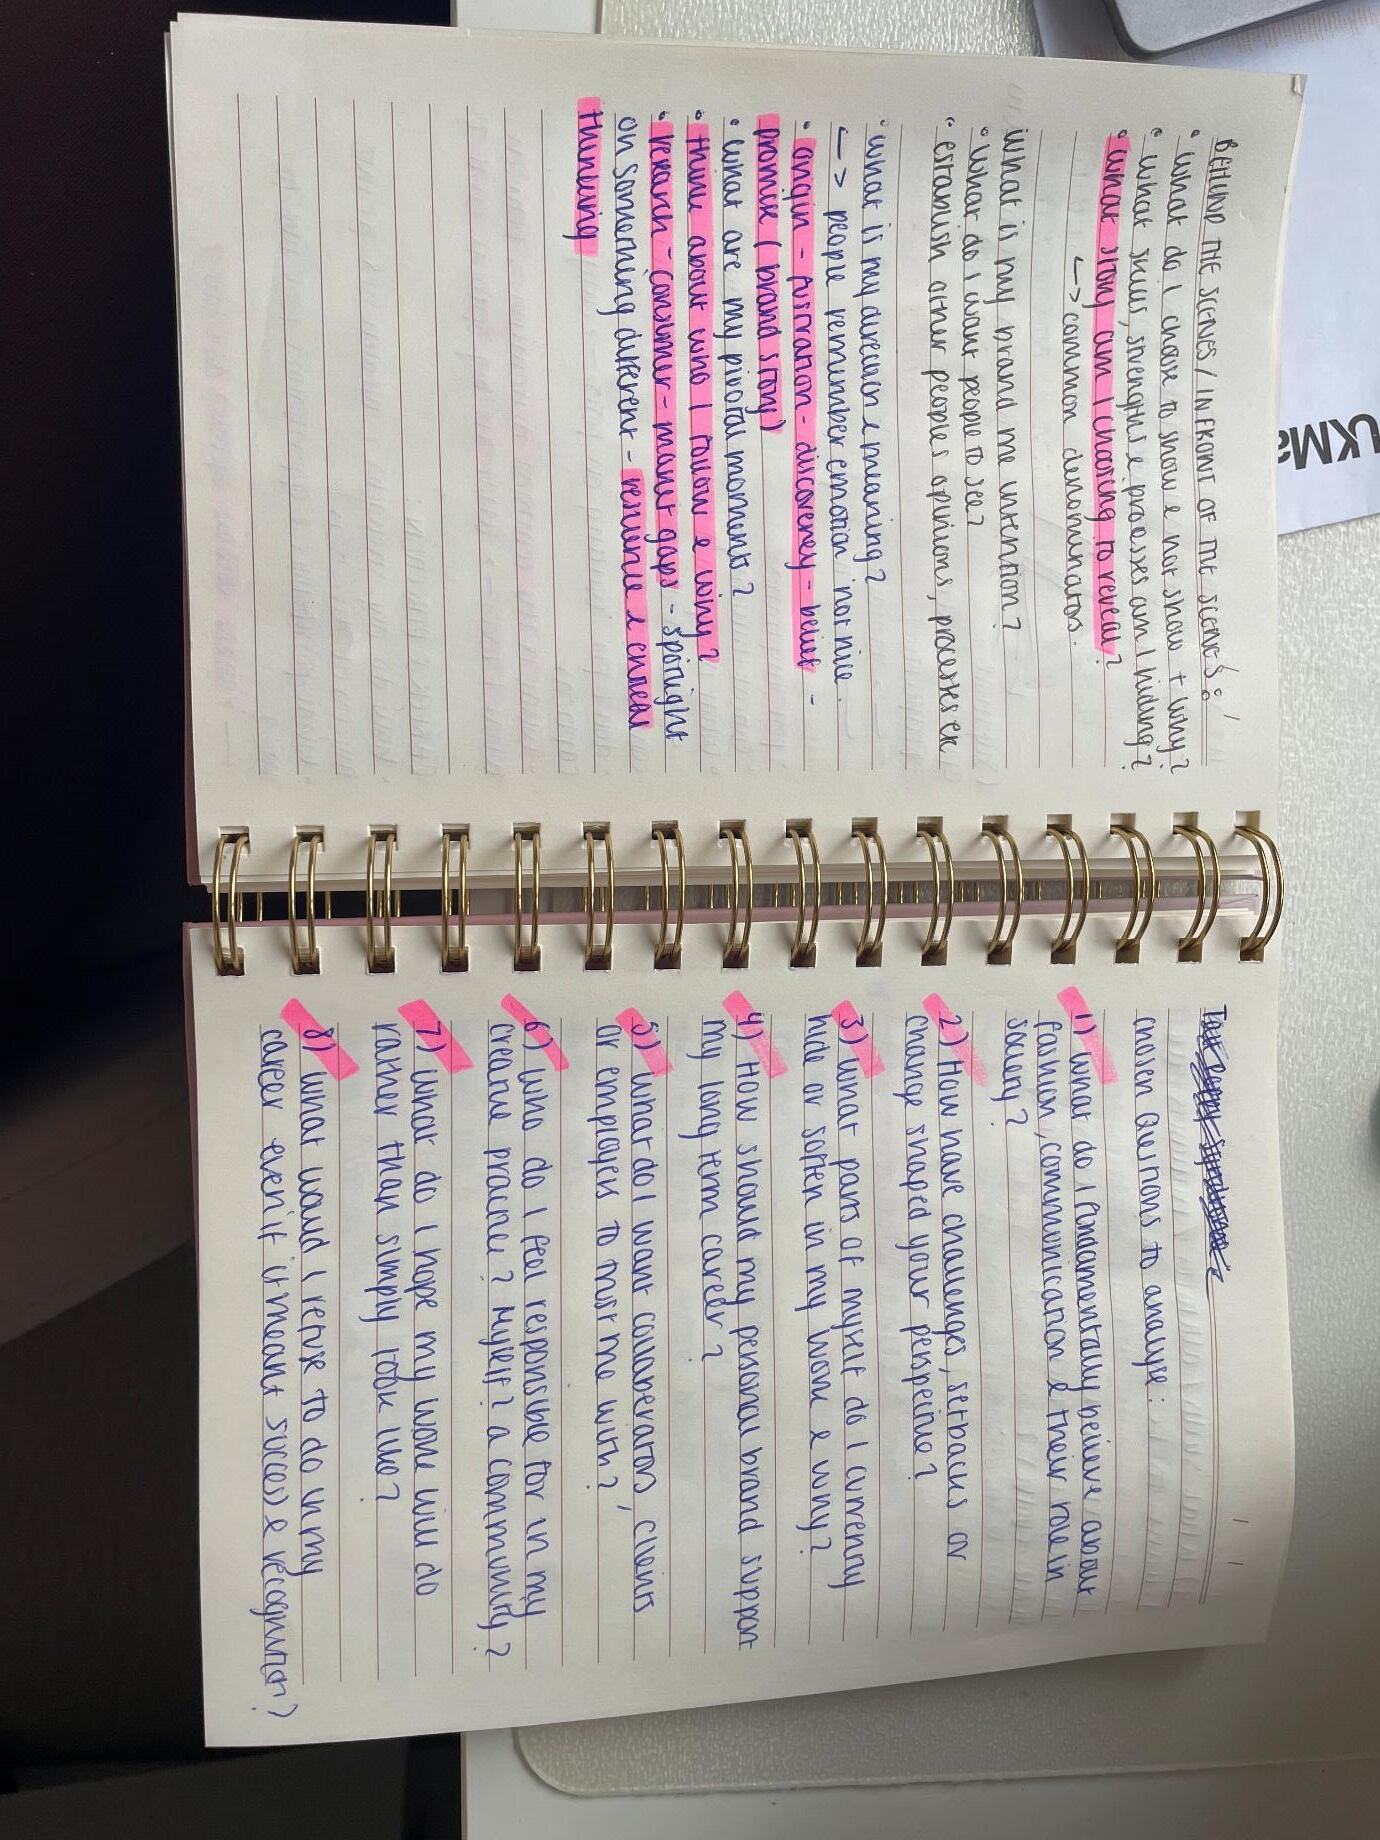 BEHIND THE SCENES / INFRONT OF THE SCENES:
• what do I choose to show & not show + why?
• what skills, strengths & processes am I hiding?
• what story am I choosing to reveal?
↳ common denominators.
what is my brand me intention?
• what do I want people to see?
• establish other people opinions, processes etc
• what is my direction & meaning?
↳ people remember emotion not nice.
• origin - fustration - discoverey - belief -
promise (brand story)
• what are my pivotal moments?
• think about who I follow & why?
• research - consumer - market gaps - spotlight
on something different - resource & critical
thinking
chosen Questions to analyse:
1) what do I fundamentally believe about
fashion, communication & their role in
society?
2) How have challenges, setbacks or
change shaped your perspective?
3) what parts of myself do I currently
hide or soften in my work & why?
4) How should my personal brand support
my long term career?
5) what do I want collaberators, clients
or employers to trust me with?
6) who do I feel responsible for in my
creative practice? Myself? a community?
7) what do I hope my work will do
rather than simply look like?
8) what would I refuse to do in my
career even if it meant success & recognition?
UKMa